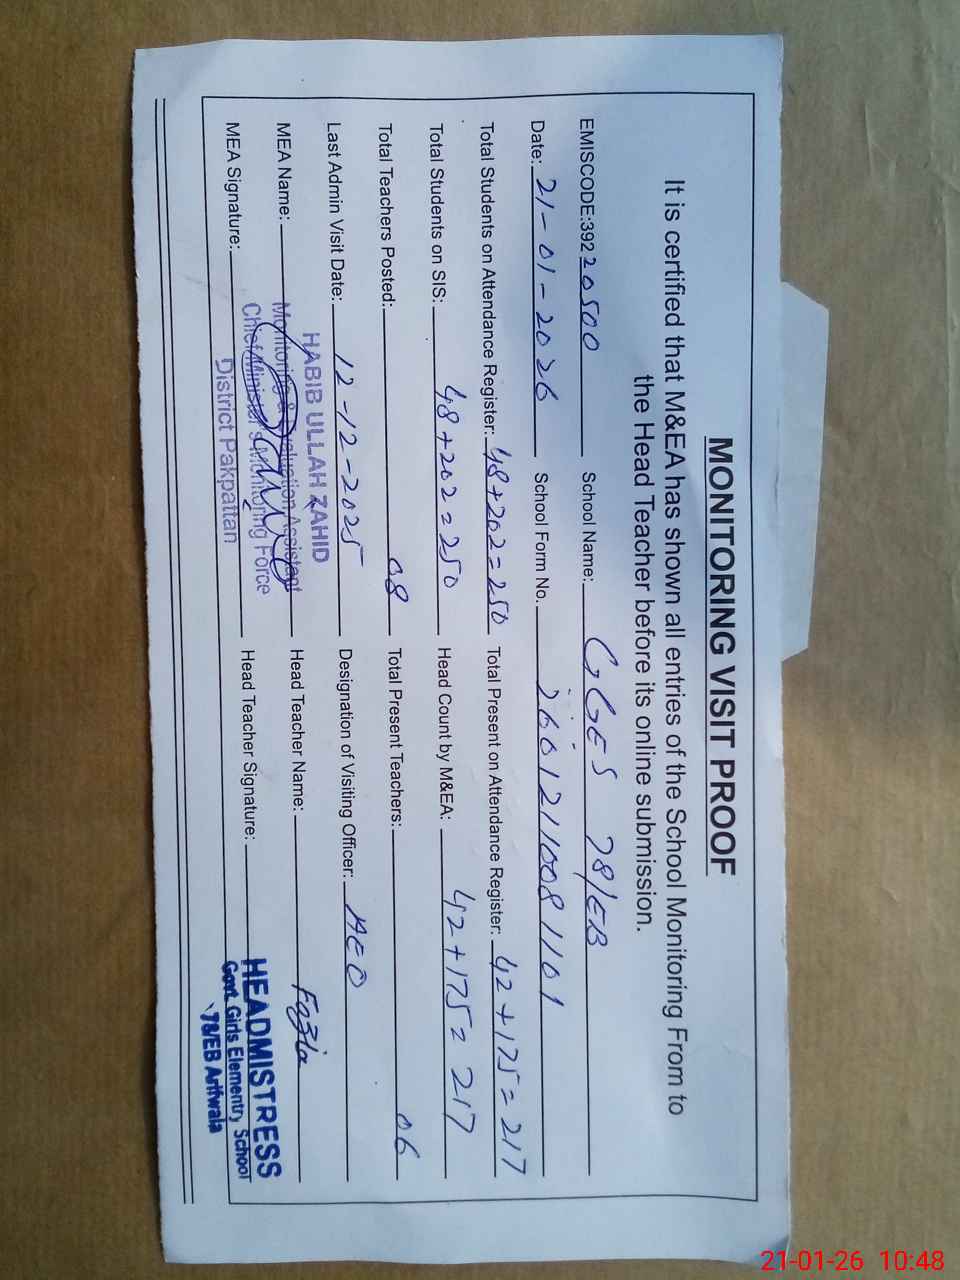 MONITORING VISIT PROOF
It is certified that M&EA has shown all entries of the School Monitoring From to
the Head Teacher before its online submission.
EMISCODE:39220500 School Name: GGES 78/EB
Date: 21-01-2026 School Form No.
Total Students on Attendance Register: 48+202=250 Total Present on Attendance Register: 42+175=217
Total Students on SIS: 48+202=250 Head Count by M&EA: 42+175=217
Total Teachers Posted: 08 Total Present Teachers: 06
Last Admin Visit Date: 12-12-2025 Designation of Visiting Officer: AEO
MEA Name: Head Teacher Name: Fozia
MEA Signature: Head Teacher Signature:
HABIB ULLAH ZAHID
Monitoring & Evaluation Assistant
Chief Minister's Monitoring Force
District Pakpattan
HEADMISTRESS
Govt. Girls Elementry School
78/EB Arifwala
21-01-26 10:48